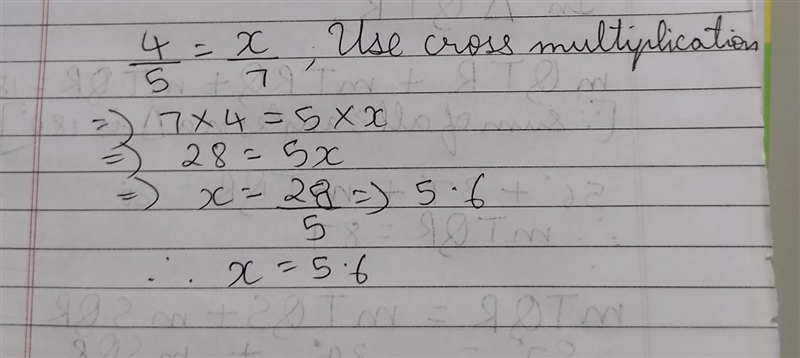 4/5 = x/7 , Use cross multiplication
=> 7 × 4 = 5 × x
=> 28 = 5x
=> x = 28/5 => 5.6
∴ x = 5.6